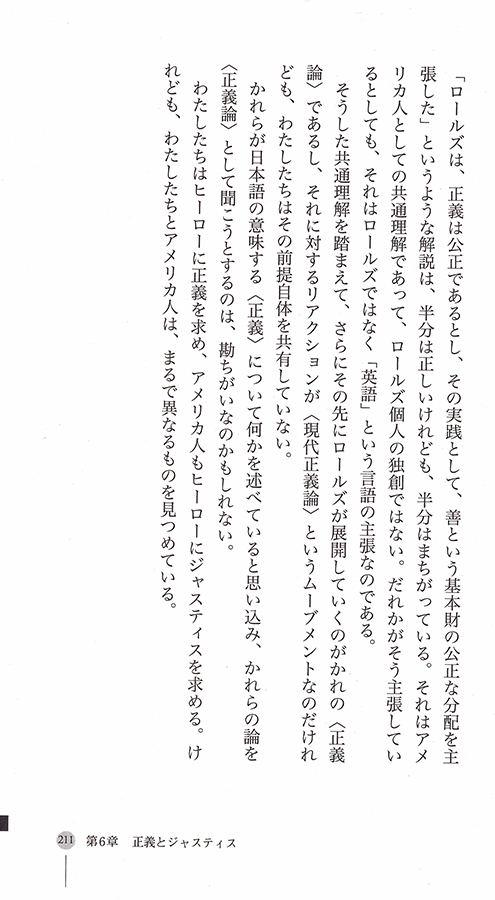 「ロールズは、正義は公正であるとし、その実践として、善という基本財の公正な分配を主
張した」というような解説は、半分は正しいけれども、半分はまちがっている。それはアメ
リカ人としての共通理解であって、ロールズ個人の独創ではない。だれかがそう主張してい
るとしても、それはロールズではなく「英語」という言語の主張なのである。
そうした共通理解を踏まえて、さらにその先にロールズが展開していくのがかれの〈正義
論〉であるし、それに対するリアクションが〈現代正義論〉というムーブメントなのだけれ
ども、わたしたちはその前提自体を共有していない。
かれらが日本語の意味する〈正義〉について何かを述べていると思い込み、かれらの論を
〈正義論〉として聞こうとするのは、勘ちがいなのかもしれない。
わたしたちはヒーローに正義を求め、アメリカ人もヒーローにジャスティスを求める。け
れども、わたしたちとアメリカ人は、まるで異なるものを見つめている。
211 第6章 正義とジャスティス